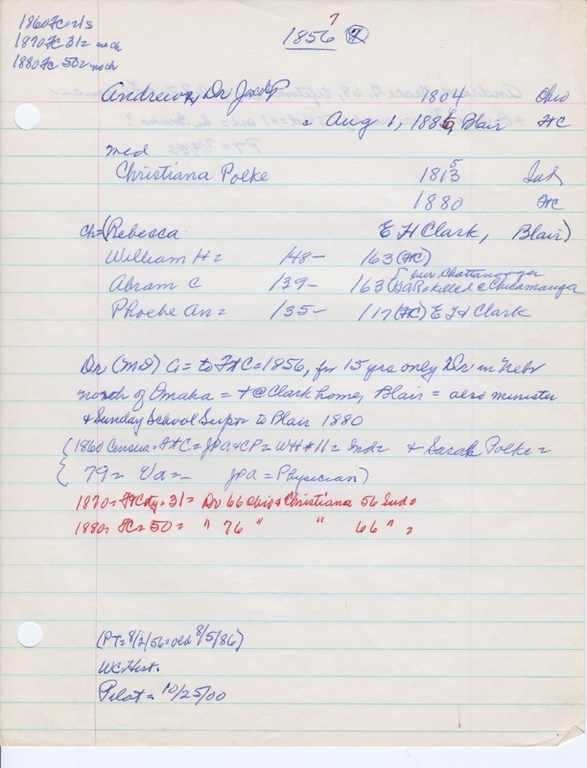 1860 FC = 1s
1870 FC 31 = no ch
1880 FC 50 = no ch
7
1856 (7)
Andrews, Dr Jacob P 1804 Ohio
c Aug 1, 1886, Blair FC
med
Christiana Polke 1815 Ind
1880 FC
ch = (Rebecca E H Clark, Blair)
William H = 148 - 163 (FC)
Abram C 139 - 163 killed Chicamauga
bur. Chattanooga
Phoebe An = 135 - 117 (FC) E H Clark
Dr (MD) a = to FtC = 1856, for 15 yrs only Dr in Nebr
north of Omaha = + @ Clark home, Blair = also minister
& Sunday School Supt = to Blair 1880
(1860 Census = FtC = JPA + CP = WH # 11 = Ind = & Sarah Polke =
79 = Va = - JPA = Physician)
1870 = 31 = Dr 66 Ohio & Christiana 56 Ind =
1880 = FC = 50 = " 76 " " 66 " =
(PT = 8/2/56 = 8/5/86)
WC Hist.
Pilot = 10/25/00